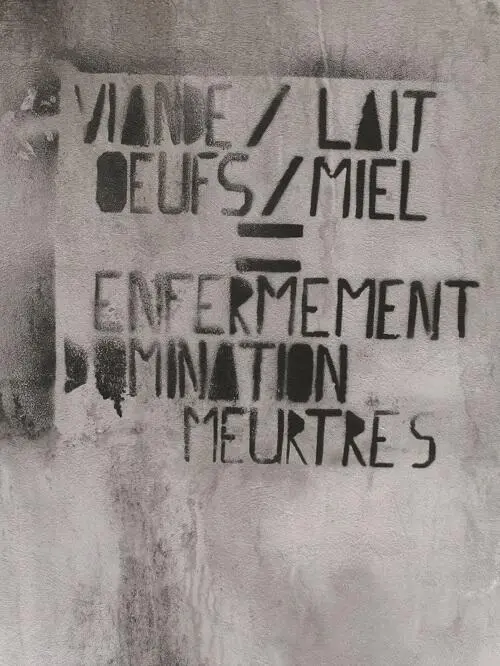 VIANDE / LAIT
OEUFS / MIEL
=
ENFERMEMENT
DOMINATION
MEURTRES